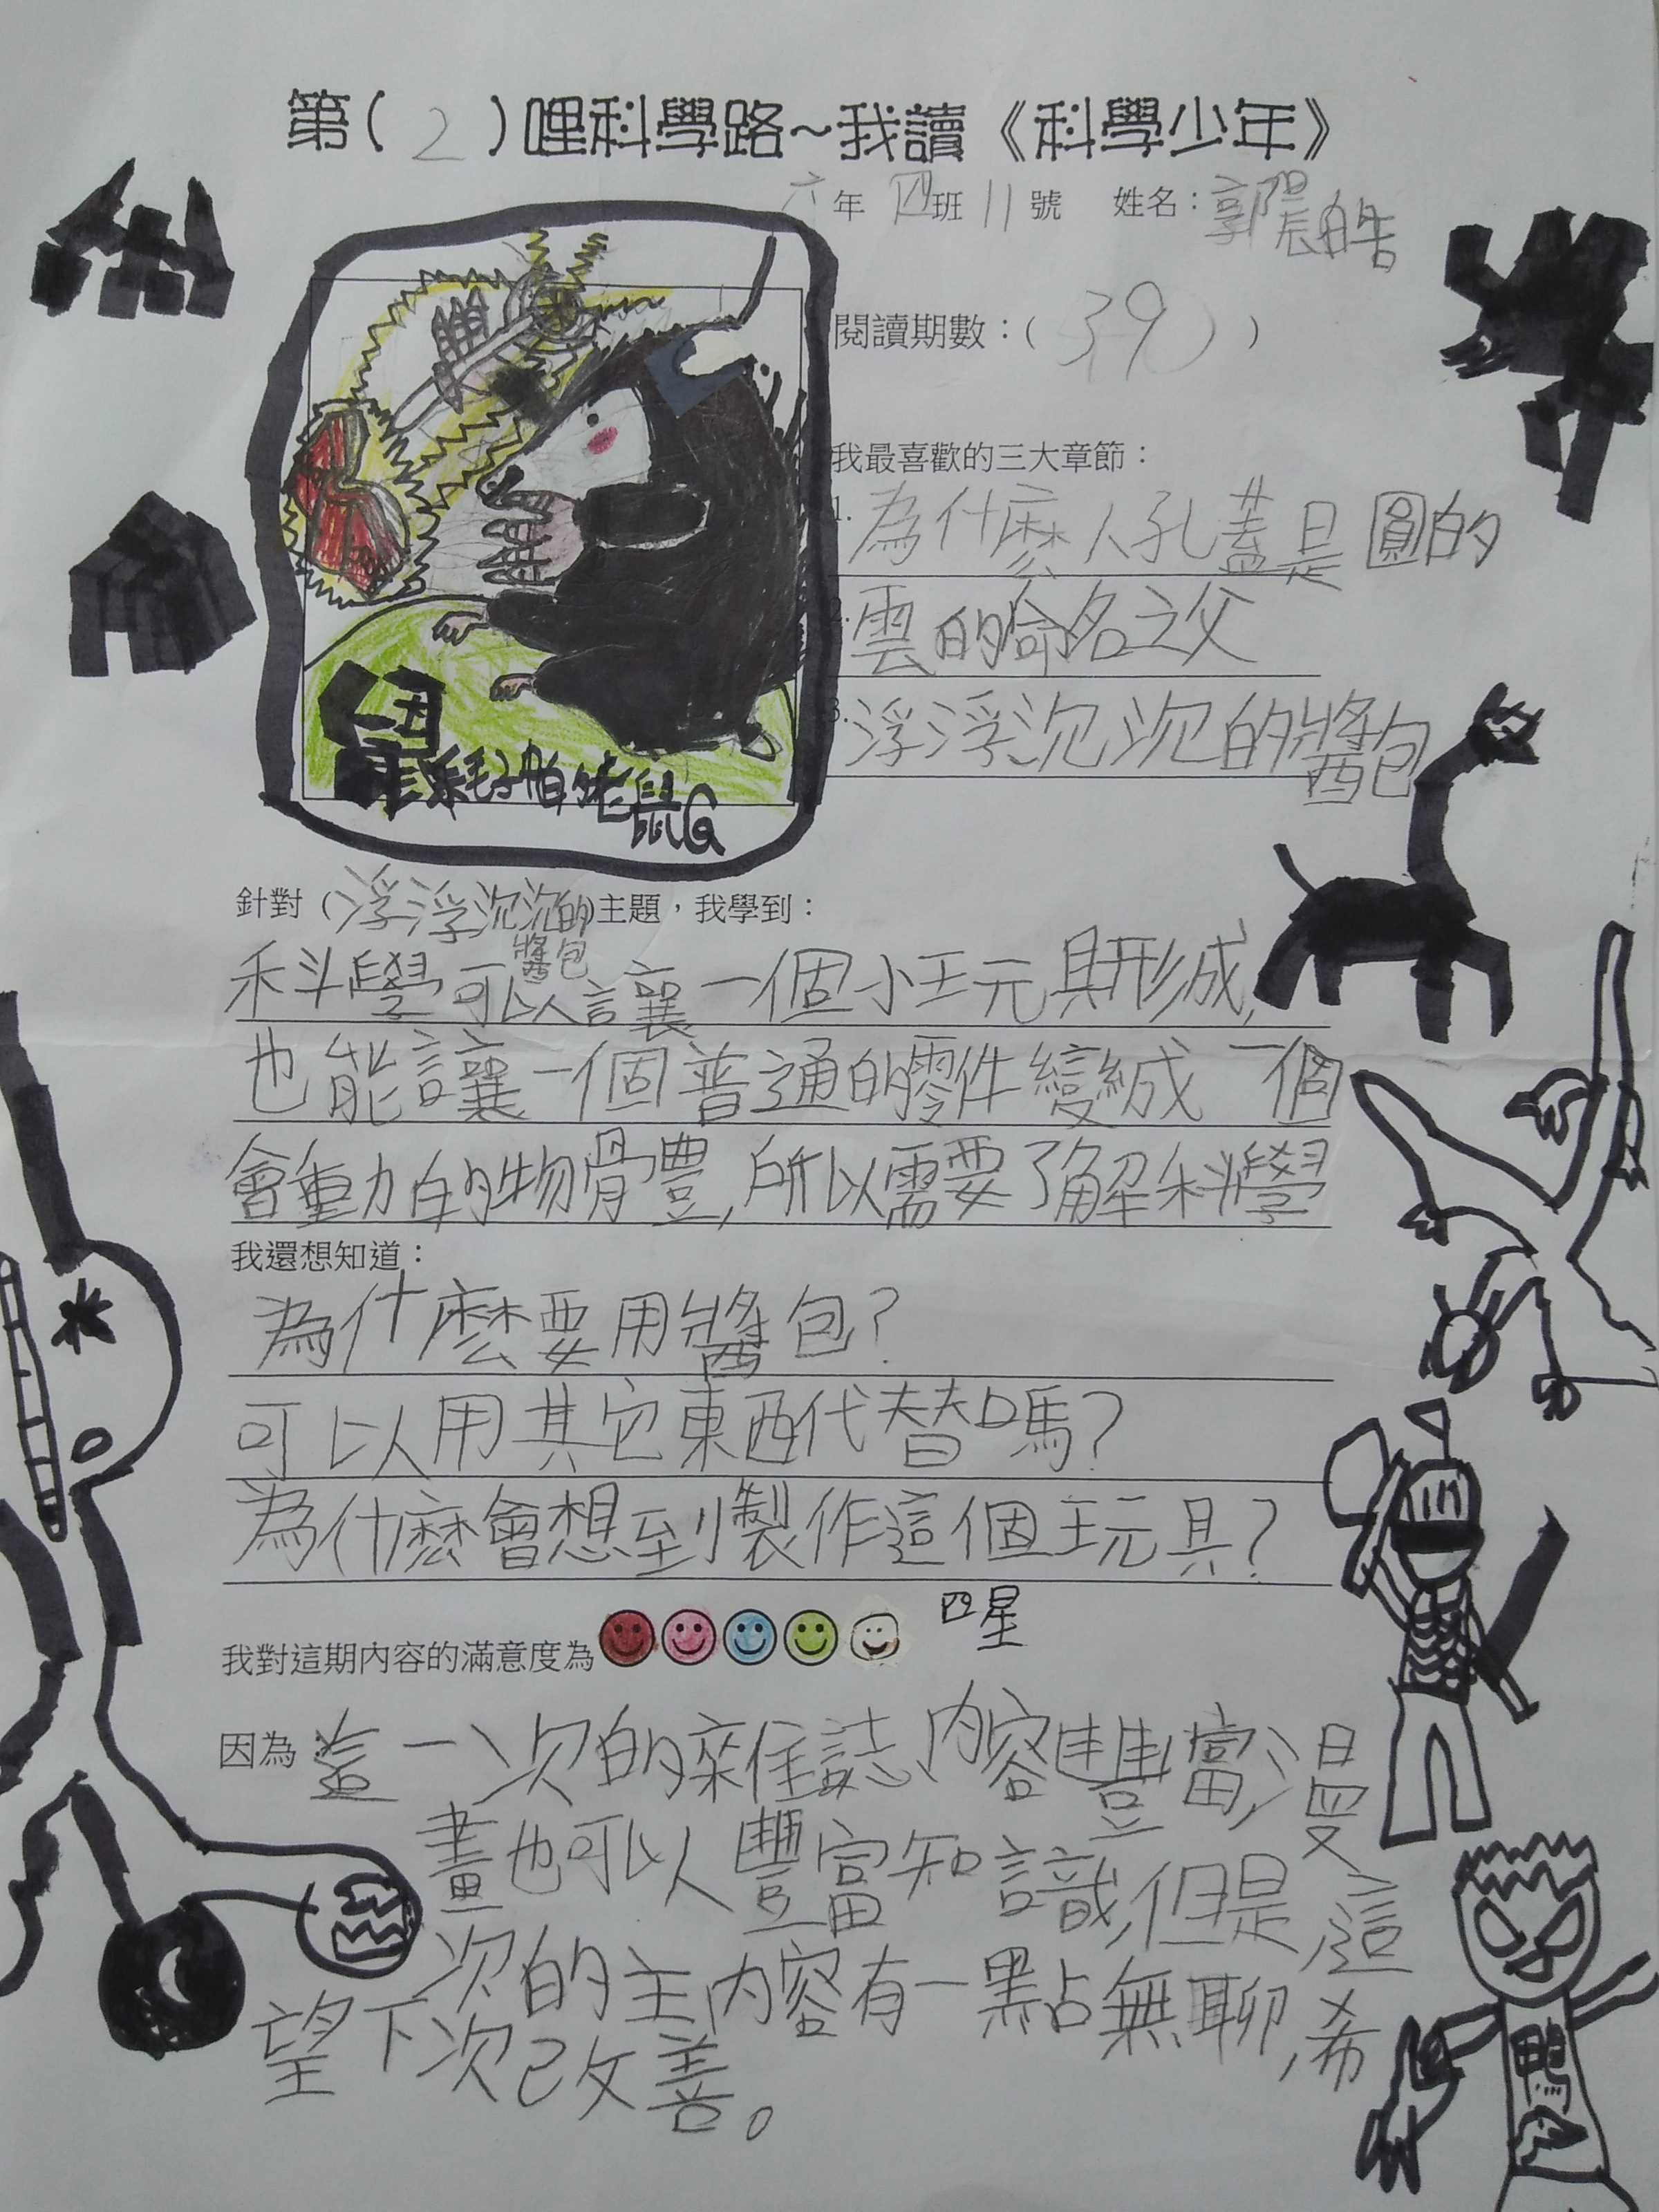 第( 2 )哩科學路~我讀《科學少年》
六年四班11號 姓名:郭晨皓
閱讀期數:( 39 )
我最喜歡的三大章節:
1. 為什麼人孔蓋是圓的
2. 雲的命名之父
3. 浮浮沉沉的醬包
鼠
老鼠
針對(浮浮沉沉的醬包)主題,我學到:
科學可以讓一個小玩具形成,
也能讓一個普通的零件變成一個
會動的物體,所以需要了解科學
我還想知道:
為什麼要用醬包?
可以用其它東西代替嗎?
為什麼會想到製作這個玩具?
我對這期內容的滿意度為 四星
因為 這一次的雜誌內容豐富,漫
畫也可以豐富知識,但是,這
次的主內容有一點無聊,希
望下次改善。